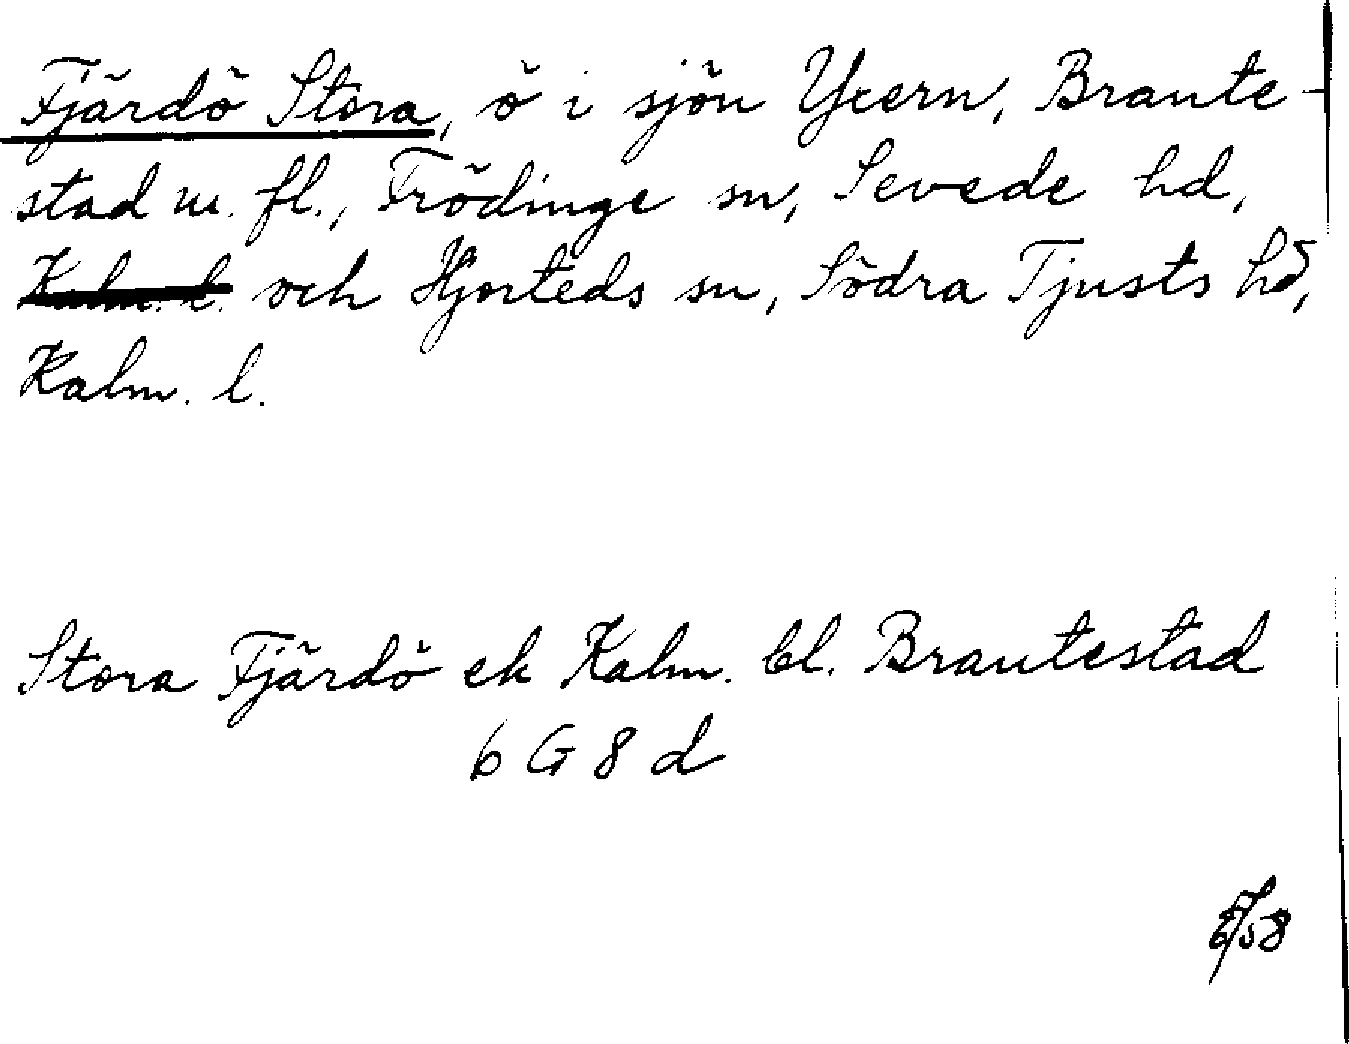 Fjärdö Stora, ö i sjön Yxern, Braute-
stad m. fl., Frödinge sn, Sevede hd,
Kalm. l. och Hjorteds sn, Södra Tjusts hd,
Kalm. l.
Stora Fjärdö ek Kalm. bl. Brautestad
6 G 8 d